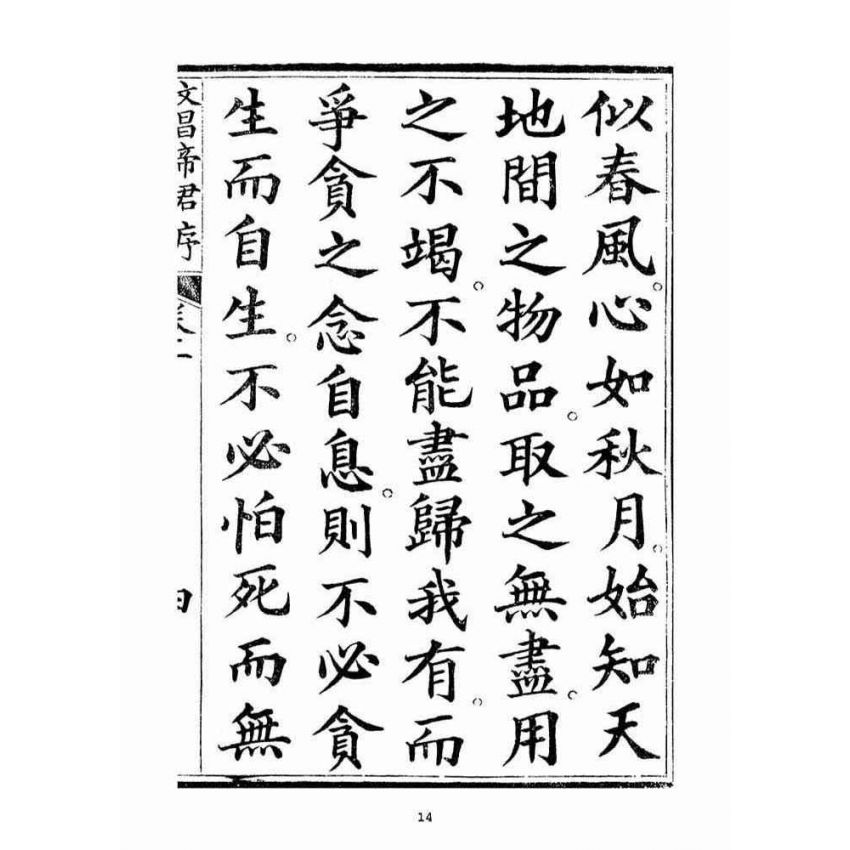 似春風。心如秋月。始知天
地間之物品。取之無盡。用
之不竭。不能盡歸我有。而
爭貪之念自息。則不必貪
生而自生。不必怕死而無
文昌帝君序
14